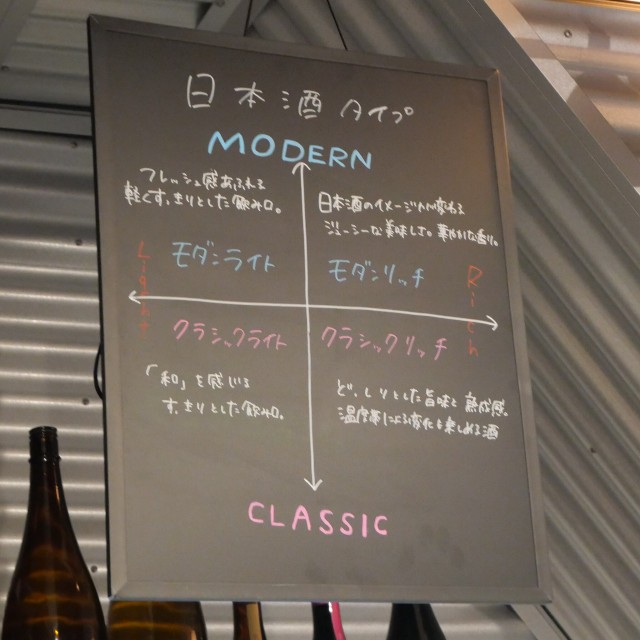 日本酒タイプ
MODERN
フレッシュ感あふれる
軽くすっきりとした飲み口。
日本酒のイメージが変わる
ジューシーな美味しさ。華やかな香り。
Light
モダンライト
モダンリッチ
Rich
クラシックライト
クラシックリッチ
「和」を感じる
すっきりとした飲み口。
どっしりとした旨味と熟成感。
温度帯による変化を楽しめる酒
CLASSIC